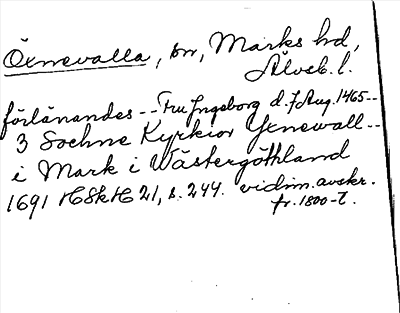 Öxnevalla, sn, Marks hd,
Älvsb. l.
förlänandes -- Fru Ingeborg d. 7 Aug. 1465 --
3 Sochne Kyrkior Yxnewall --
i Mark i Wästergöthland
1691 HSkH 21, s. 244. vidim. avskr.
fr. 1800-t.